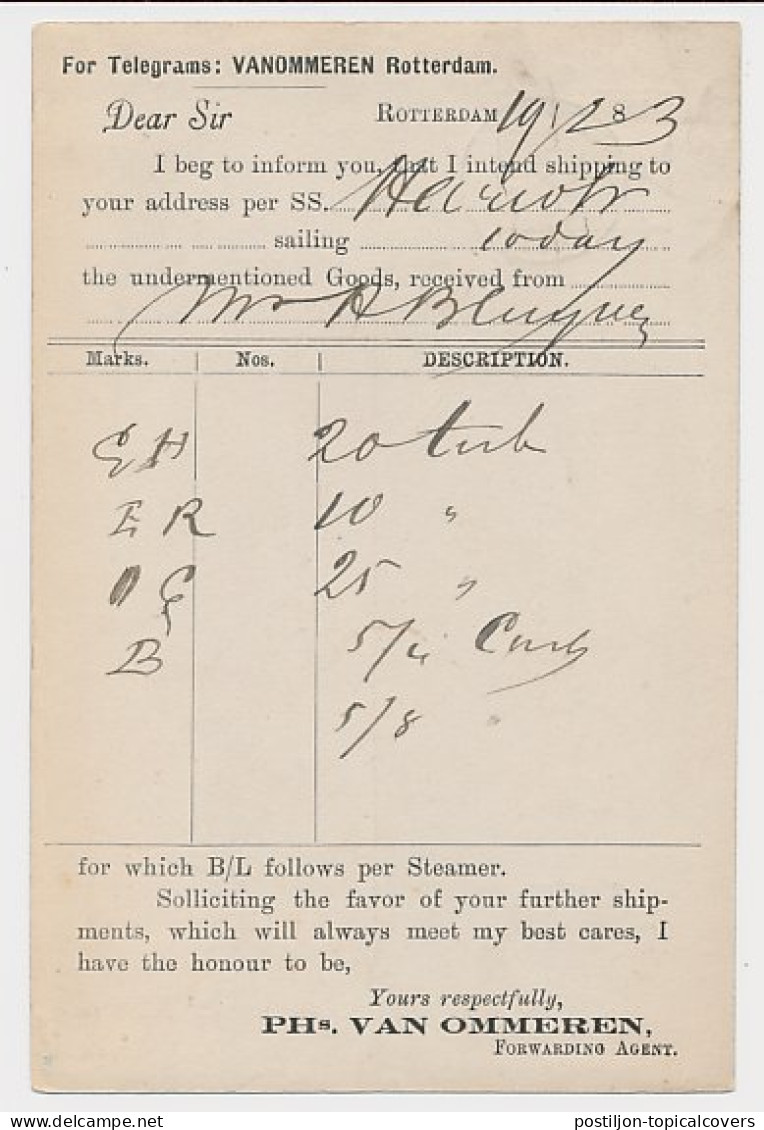 For Telegrams: VANOMMEREN Rotterdam.
Dear Sir ROTTERDAM 19/2 83
I beg to inform you, that I intend shipping to
your address per SS.
sailing today
the undermentioned Goods, received from
A
Marks. Nos. DESCRIPTION.
E H 20 tub
E R 10 "
O E 25 "
B 5/4
5/8 "
for which B/L follows per Steamer.
Solliciting the favor of your further ship-
ments, which will always meet my best cares, I
have the honour to be,
Yours respectfully,
PHs. VAN OMMEREN,
FORWARDING AGENT.
postiljon-topicalcovers